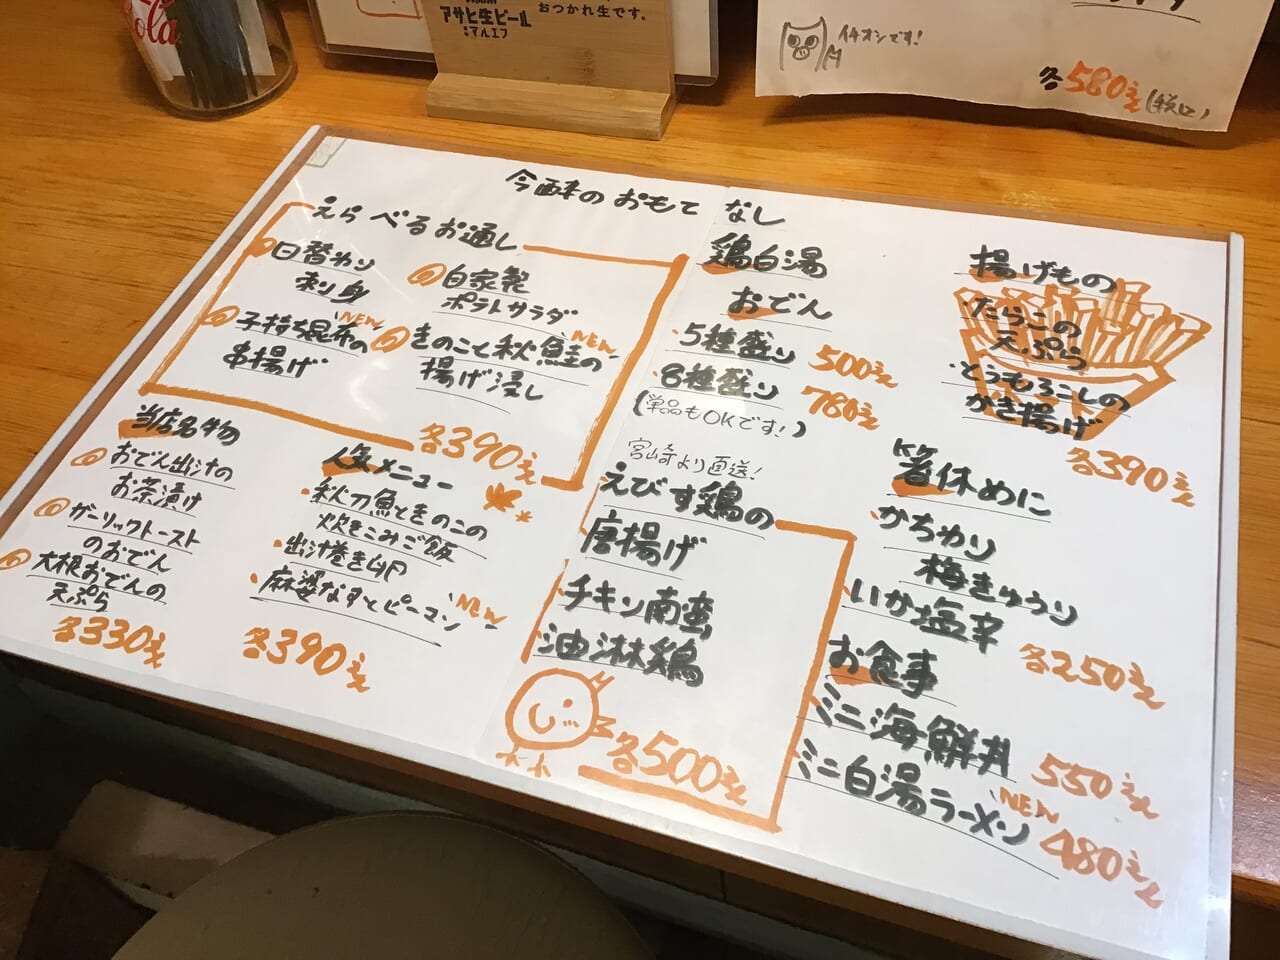 ola
アサヒ生ビール
マルエフ
おつかれ生です。
イチオシです!
各580えん(税込)
今酉本のおもてなし
えらべるお通し
日替わり
刺り身
自家製
ポテトサラダ
子持ち昆布の NEW
串揚げ
きのこと秋鮭の NEW
揚げ浸し
各390えん
当店名物
おでん出汁の
お茶漬け
ガーリックトースト
のおでん
大根おでんの
天ぷら
各330えん
人気メニュー
秋刀魚ときのこの
炊きこみご飯
出汁巻き卵
麻婆なすとピーマン NEW
各390えん
鶏白湯
おでん
5種盛り 500えん
8種盛り 780えん
(単品もOKです!)
宮崎より直送!
えびす鶏の
唐揚げ
チキン南蛮
油淋鶏
各500えん
揚げもの
たらこの
天ぷら
とうもろこしの
かき揚げ
各390えん
箸休めに
かちわり
梅きゅうり
いか塩辛
各250えん
お食事
ミニ海鮮丼 550えん
ミニ白湯ラーメン NEW 480えん